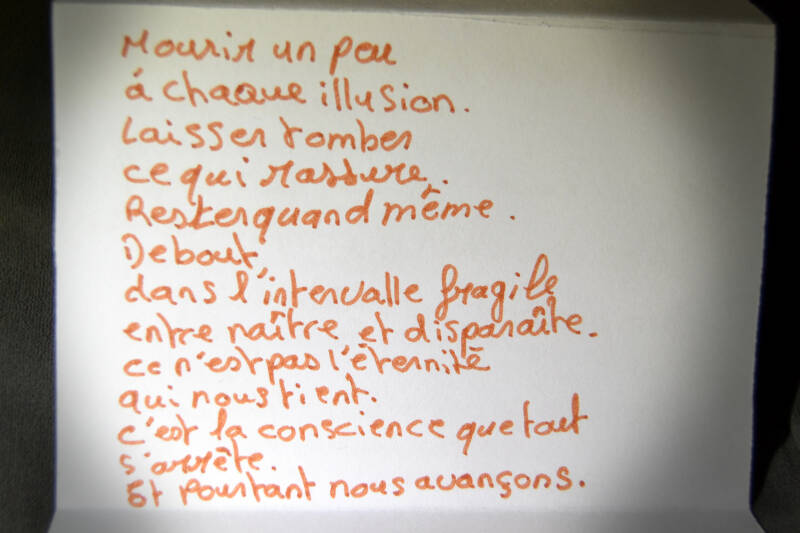 Mourir un peu
á chaque illusion.
Laisser tomber
ce qui rassure.
Rester quand même.
Debout,
dans l'intervalle fragile
entre naître et disparaître.
ce n'est pas l'éternité
qui nous tient.
c'est la conscience que tout
s'arrête.
Et pourtant nous avançons.